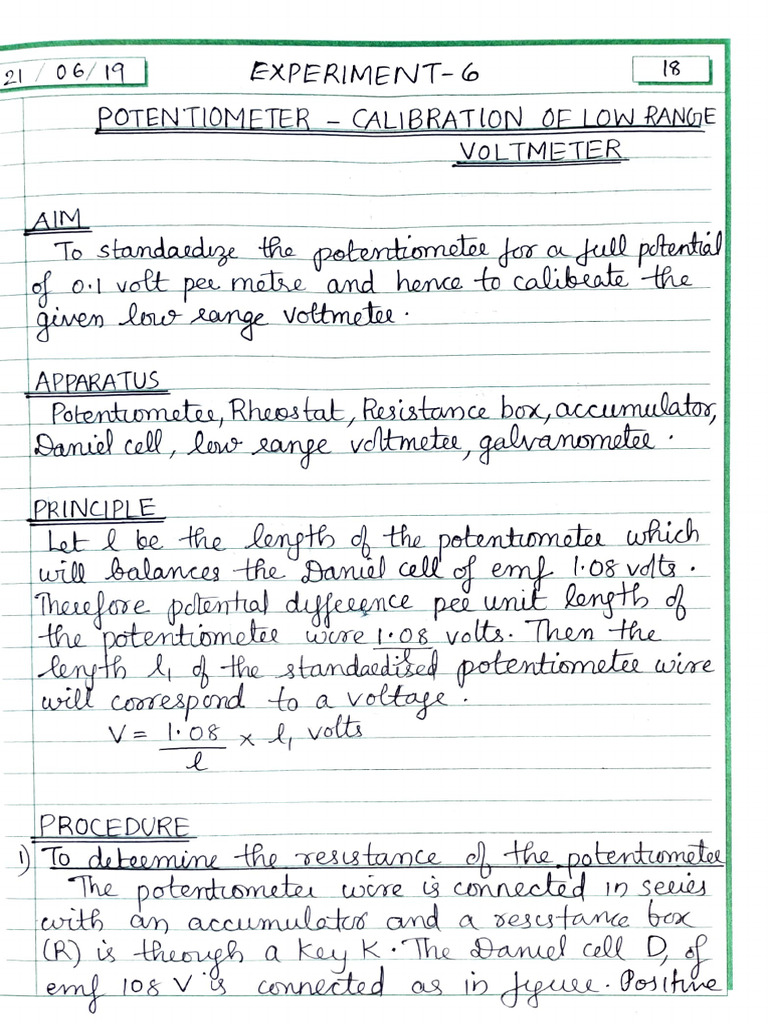 21/06/19 EXPERIMENT-6 18
POTENTIOMETER - CALIBRATION OF LOW RANGE
VOLTMETER
AIM
To standardize the potentiometer for a full potential
of 0.1 volt per metre and hence to calibrate the
given low range voltmeter.
APPARATUS
Potentiometer, Rheostat, Resistance box, accumulator,
Daniel cell, low range voltmeter, galvanometer.
PRINCIPLE
Let l be the length of the potentiometer which
will balances the Daniel cell of emf 1.08 volts.
Therefore potential difference per unit length of
the potentiometer wire 1.08 volts. Then the
length l₁ of the standardised potentiometer wire
will correspond to a voltage.
V = 1.08/l × l₁ volts
PROCEDURE
1) To determine the resistance of the potentiometer
The potentiometer wire is connected in series
with an accumulator and a resistance box
(R) is through a key K. The Daniel cell D, of
emf 108 V is connected as in figure. Positive